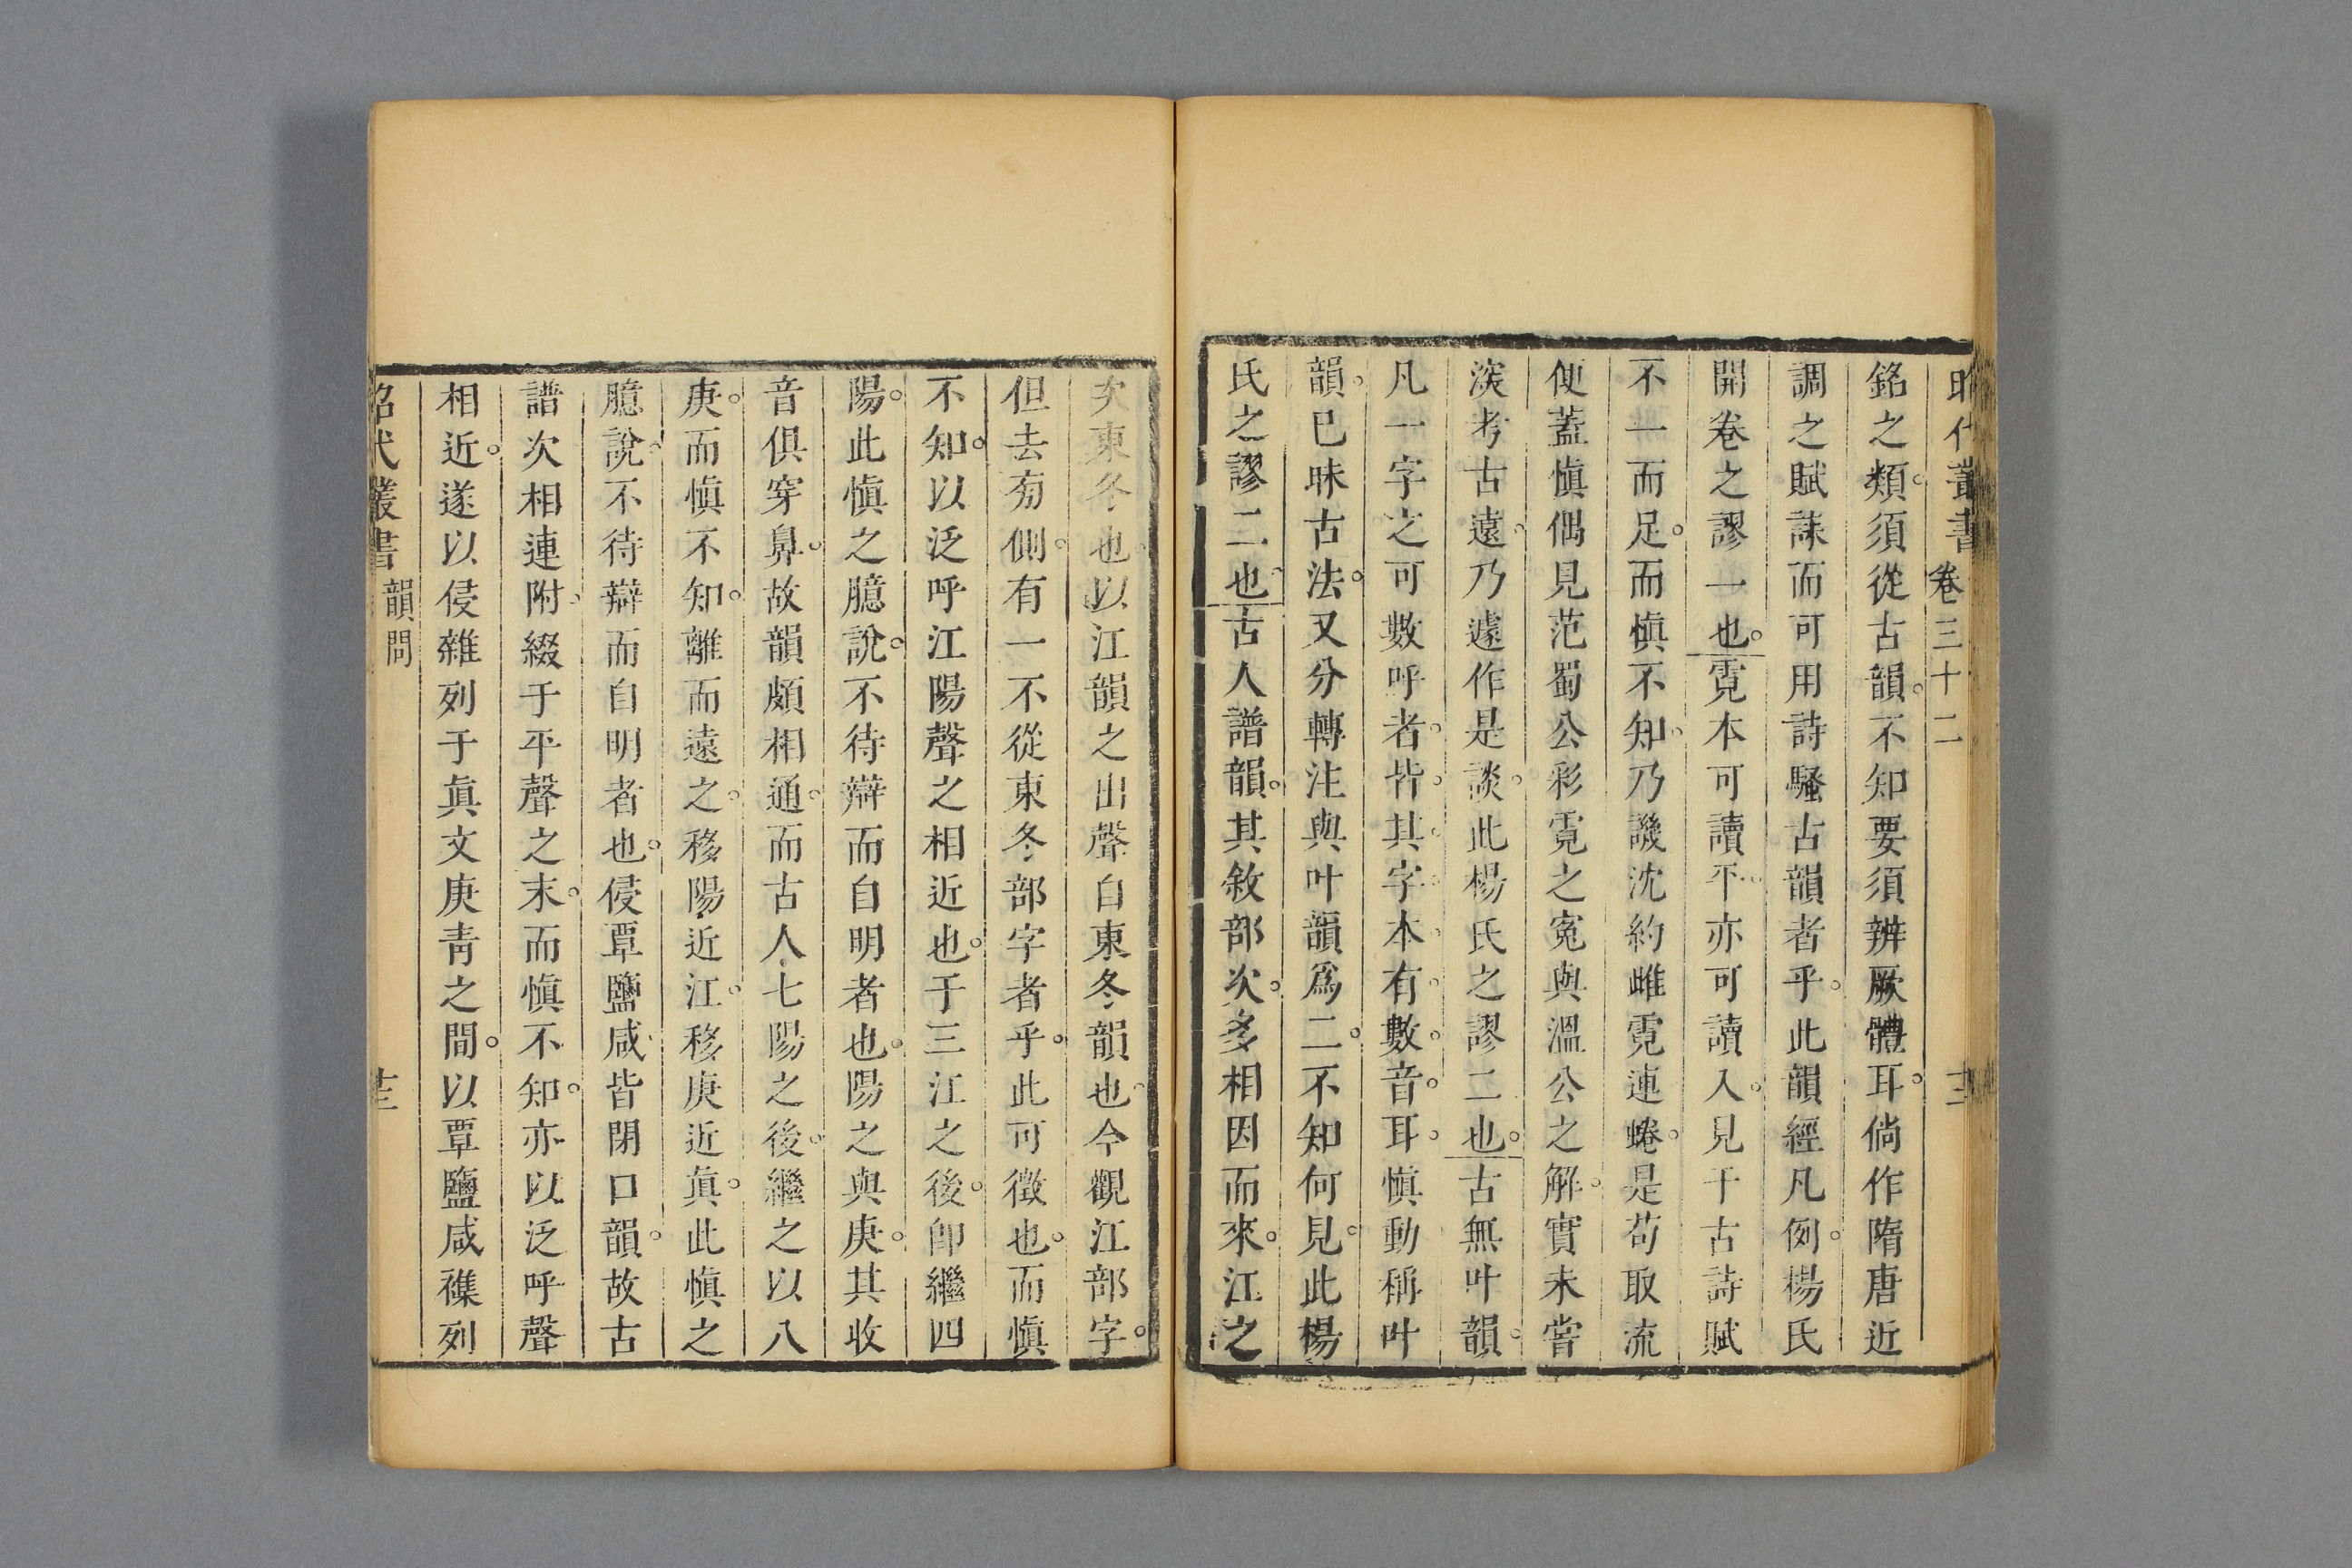 昭代叢書 卷三十二 十二
銘之類須從古韻不知要須辨厥體耳倘作隋唐近
調之賦誄而可用詩騷古韻者乎此韻經凡例楊氏
開卷之謬一也霓本可讀平亦可讀入見于古詩賦
不一而足而愼不知乃譏沈約雌霓連蜷是苟取流
便蓋愼偶見范蜀公彩霓之寃與溫公之解實未嘗
滨考古遠乃遽作是談此楊氏之謬二也古無叶韻
凡一字之可數呼者皆其字本有數音耳愼動稱叶
韻已昧古法又分轉注與叶韻爲二不知何見此楊
氏之謬二也古人譜韻其敘部次多相因而來江之
次東冬也以江韻之出聲自東冬韻也今觀江部字
但去旁側有一不從東冬部字者乎此可徵也而愼
不知以泛呼江陽聲之相近也于三江之後卽繼四
陽此愼之臆說不待辯而自明者也陽之與庚其收
音俱穿鼻故韻頗相通而古人七陽之後繼之以八
庚而愼不知離而遠之移陽近江移庚近眞此愼之
臆說不待辯而自明者也侵覃鹽咸皆閉口韻故古
譜次相連附綴于平聲之末而愼不知亦以泛呼聲
相近遂以侵雜列于眞文庚靑之間以覃鹽咸襍列
昭代叢書 韻問 十三